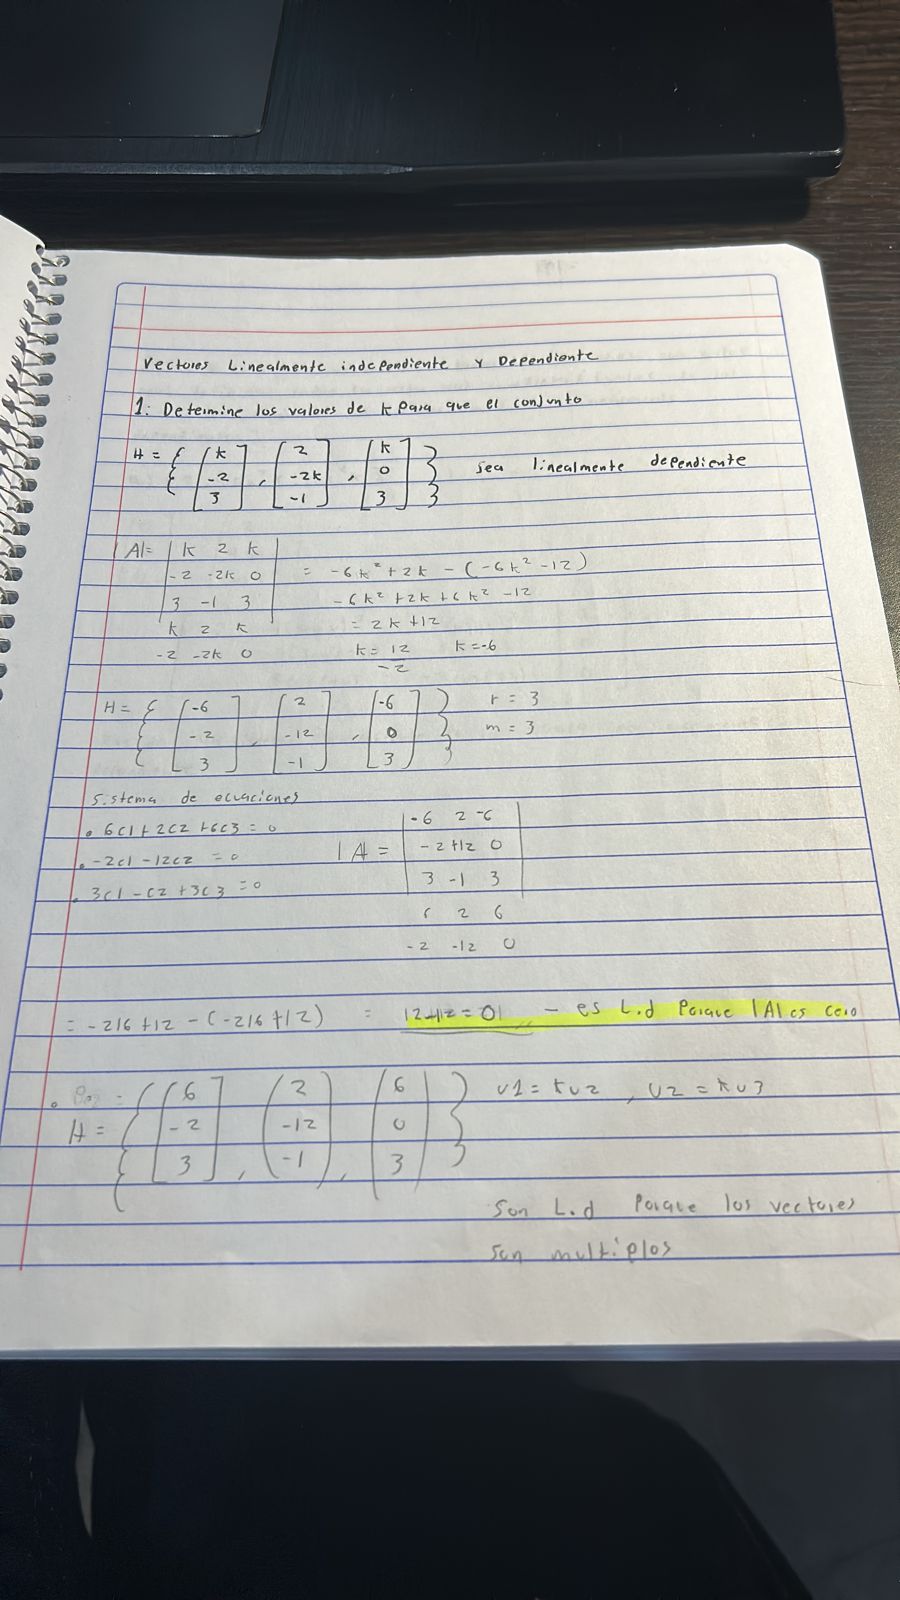 Vectores Linealmente independiente y Dependiente
1. Determine los valores de k Para que el conjunto
H = { [k -2 3], [2 -2k -1], [k 0 3] } sea linealmente dependiente
|A|= | k 2 k |
-2 -2k 0 = -6k² + 2k - (-6k² -12)
3 -1 3 -6k² +2k +6k² -12
k 2 k = 2k +12
-2 -2k 0 k = 12 / -2 k = -6
H = { [-6 -2 3], [2 -12 -1], [-6 0 3] } r = 3
m = 3
Sistema de ecuaciones
• 6c1 + 2c2 + 6c3 = 0
• -2c1 - 12c2 = 0
• 3c1 - c2 + 3c3 = 0
|A = | -6 2 -6 |
-2 +12 0
3 -1 3
6 2 6
-2 -12 0
= -216 +12 - (-216 +12) = 12+12 = 0 - es L.d Porque |A| es cero
H = { [6 -2 3], [2 -12 -1], [6 0 3] } v1 = kv2 , v2 = kv3
Son L.d Porque los vectores
son multiplos